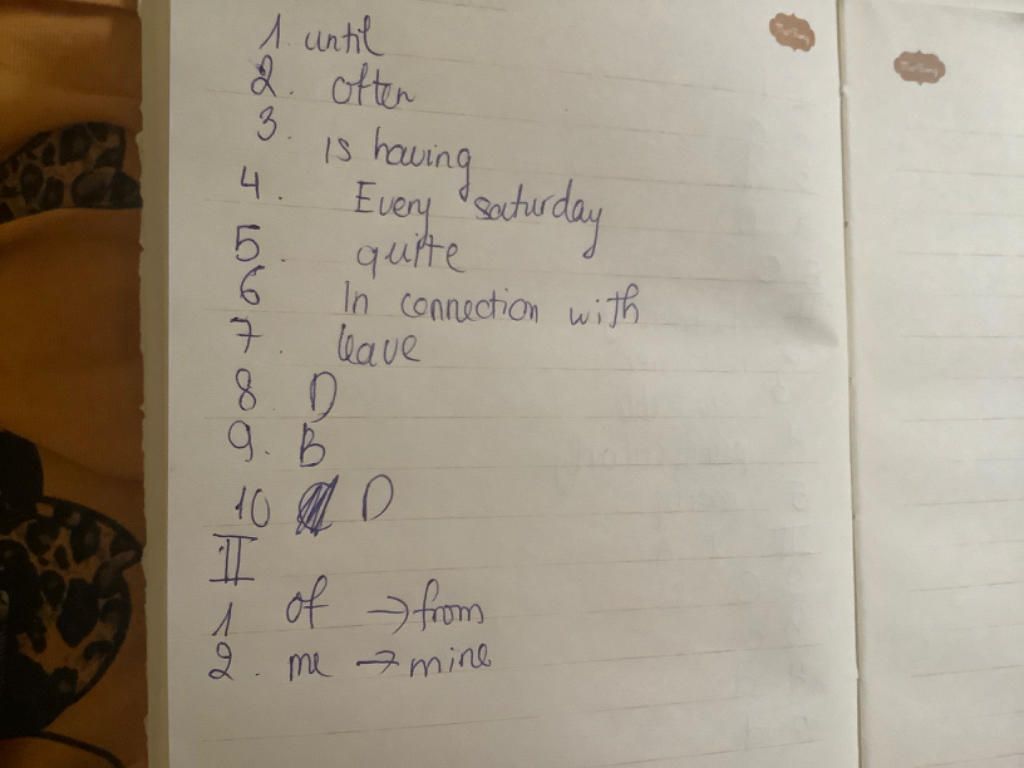 1 until
2. often
3. is having
4. Every saturday
5. quite
6 In connection with
7. leave
8 D
9. B
10 D
II
1 of → from
2. me → mine